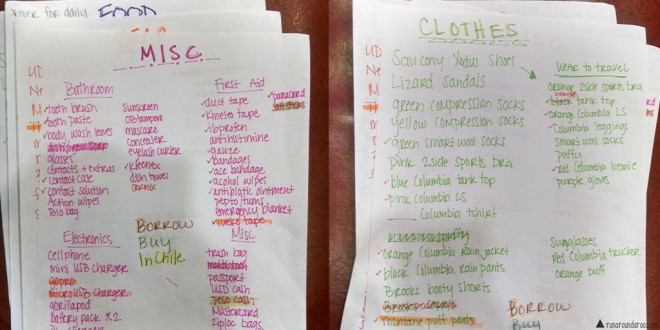 for daily FOOD
MISC
Bathroom
tooth brush
tooth paste
body wash leaves
glasses
contacts + extras
contact case
contact solution
Action wipes
Bio bag
Sunscreen
OB tampons
mascara
concealer
eyelash curler
Kleenex
dish towel
First Aid
duct tape
Kinesio tape
ibprofen
antihistimine
gauze
bandages
ace bandage
alcohol wipes
antibiotic ointment
pepto/tums
emergency blanket
paracord
BORROW
BUY
In Chile
Electronics
cell phone
mini USB charger
micro USB charger
gorilapod
battery pack x2
Misc
trash bag
passport
USD cash
peso cash
Mastercard
ziploc bags
CLOTHES
Saucony Xodus Shoes
Lizard sandals
green compression socks
yellow compression socks
green smart wool socks
pink 2side sports bra
blue Columbia tank top
pink Columbia LS
Columbia tshirt
orange Columbia rain jacket
black Columbia rain pants
Brooks booty shorts
montane puff pants
Wear to travel
orange 2side sports bra
orange
black tank top
orange Columbia LS
Columbia leggings
smart wool socks
puffy
red Columbia beanie
purple gloves
Sunglasses
Red Columbia trucker
orange buff
BORROW
BUY